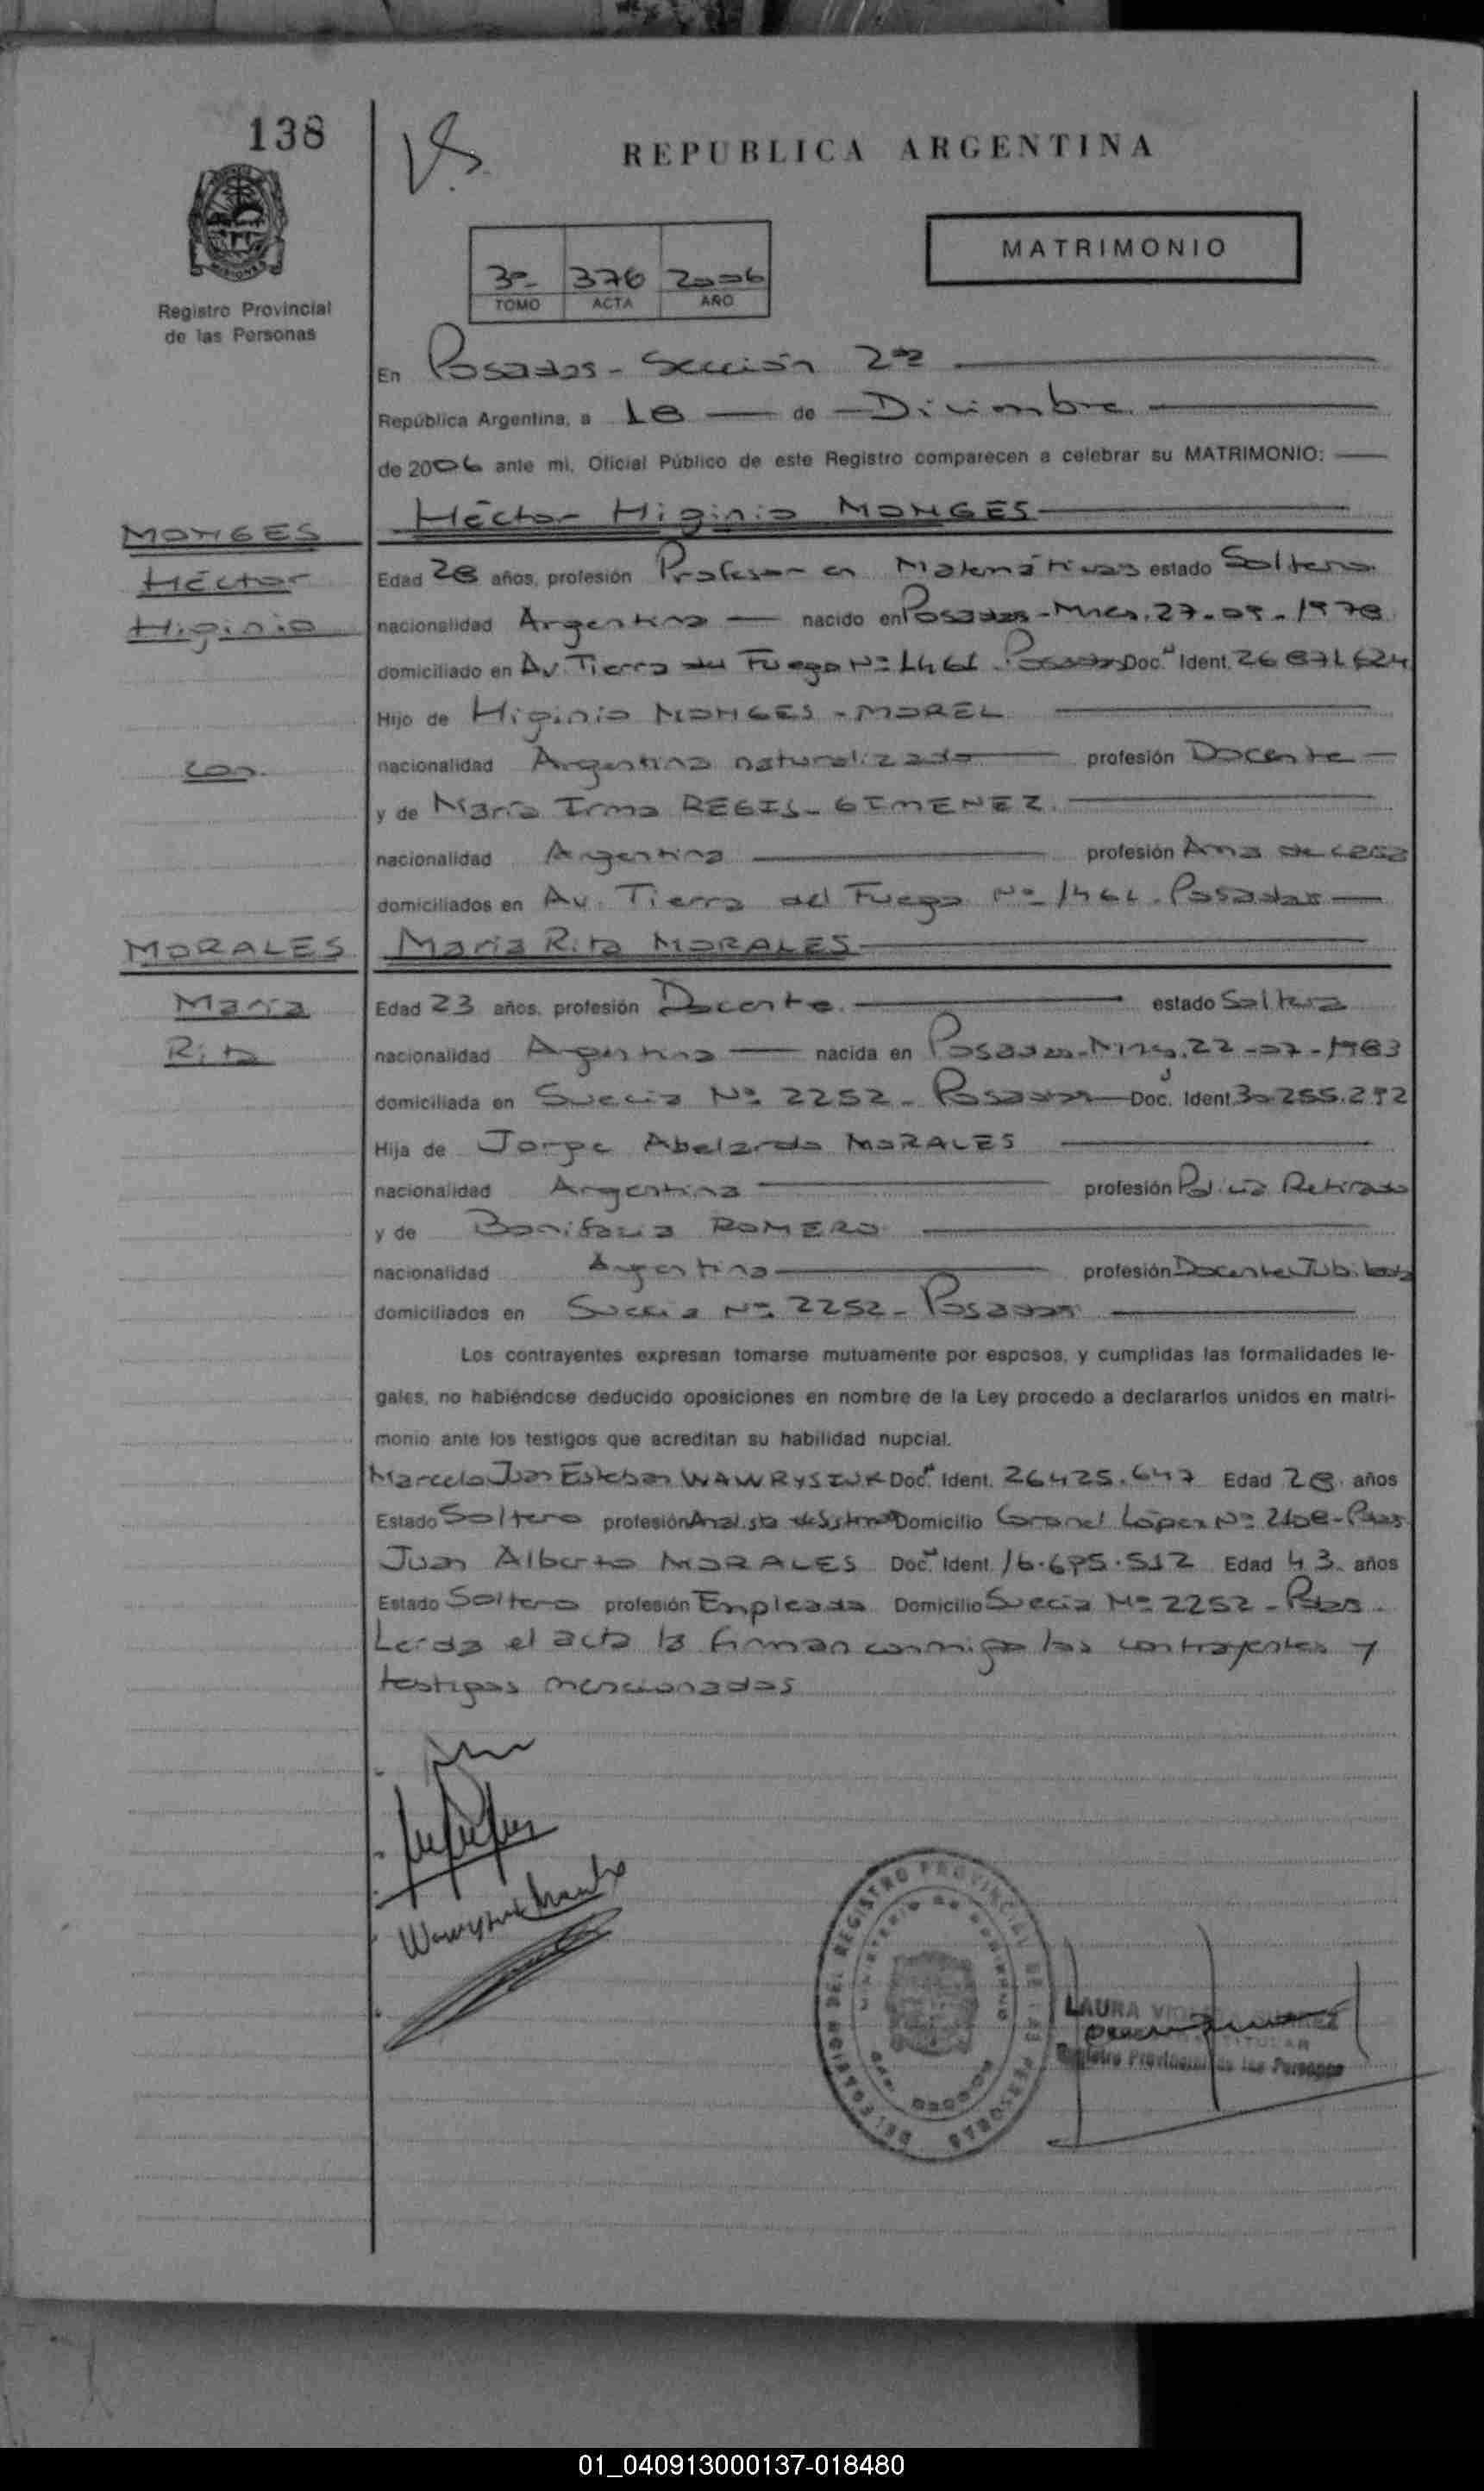 138
V.S.
REPUBLICA ARGENTINA
MISIONES
Registro Provincial
de las Personas
3º 376 2006
TOMO ACTA AÑO
MATRIMONIO
En Posadas - Sección 2da
República Argentina, a 18 de Diciembre
de 2006 ante mi, Oficial Público de este Registro comparecen a celebrar su MATRIMONIO:
MONGES
Héctor
Higinio
con
Héctor Higinio MONGES
Edad 28 años, profesión Profesor en Matemáticas estado Soltero
nacionalidad Argentino nacido en Posadas - Mnes, 27-09-1978
domiciliado en Av Tierra del Fuego Nº 1461 Posadas Doc. Ident. 26871624
Hijo de Higinio MONGES - MOREL
nacionalidad Argentino naturalizado profesión Docente
y de María Irma REGIS - GIMENEZ
nacionalidad Argentina profesión Ama de casa
domiciliados en Av. Tierra del Fuego Nº 1461 - Posadas
MORALES
María
Rita
María Rita MORALES
Edad 23 años, profesión Docente estado Soltera
nacionalidad Argentina nacida en Posadas - Mnes, 22-07-1983
domiciliada en Suecia Nº 2252 - Posadas Doc. Ident. 30.255.292
Hija de Jorge Abelardo MORALES
nacionalidad Argentina profesión Policía Retirado
y de Bonifacia ROMERO
nacionalidad Argentina profesión Docente Jubilada
domiciliados en Suecia Nº 2252 - Posadas
Los contrayentes expresan tomarse mutuamente por esposos, y cumplidas las formalidades le-
gales, no habiéndose deducido oposiciones en nombre de la Ley procedo a declararlos unidos en matri-
monio ante los testigos que acreditan su habilidad nupcial.
Marcelo Juan Esteban WAWRYSIUK Doc. Ident. 26425.647 Edad 28 años
Estado Soltero profesión Analista de Sistemas Domicilio Coronel López Nº 2108 - Pdas
Juan Alberto MORALES Doc. Ident. 16.695.512 Edad 43 años
Estado Soltero profesión Empleado Domicilio Suecia Nº 2252 - Pdas.
Leída el acta la firman conmigo los contrayentes y
testigos mencionados
DELEGACION DEL REGISTRO PROVINCIAL DE LAS PERSONAS
MINISTERIO DE GOBIERNO
LAURA
TITULAR
Registro Provincial de las Personas
01_040913000137-018480